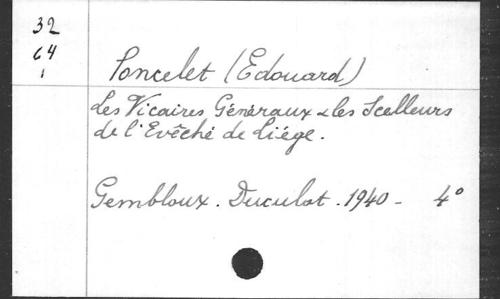 32
64
1
Poncelet (Edouard)
Les Vicaires Généraux & les Scelleurs
de l'Evêché de Liége.
Gembloux. Duculot. 1940 - 4°